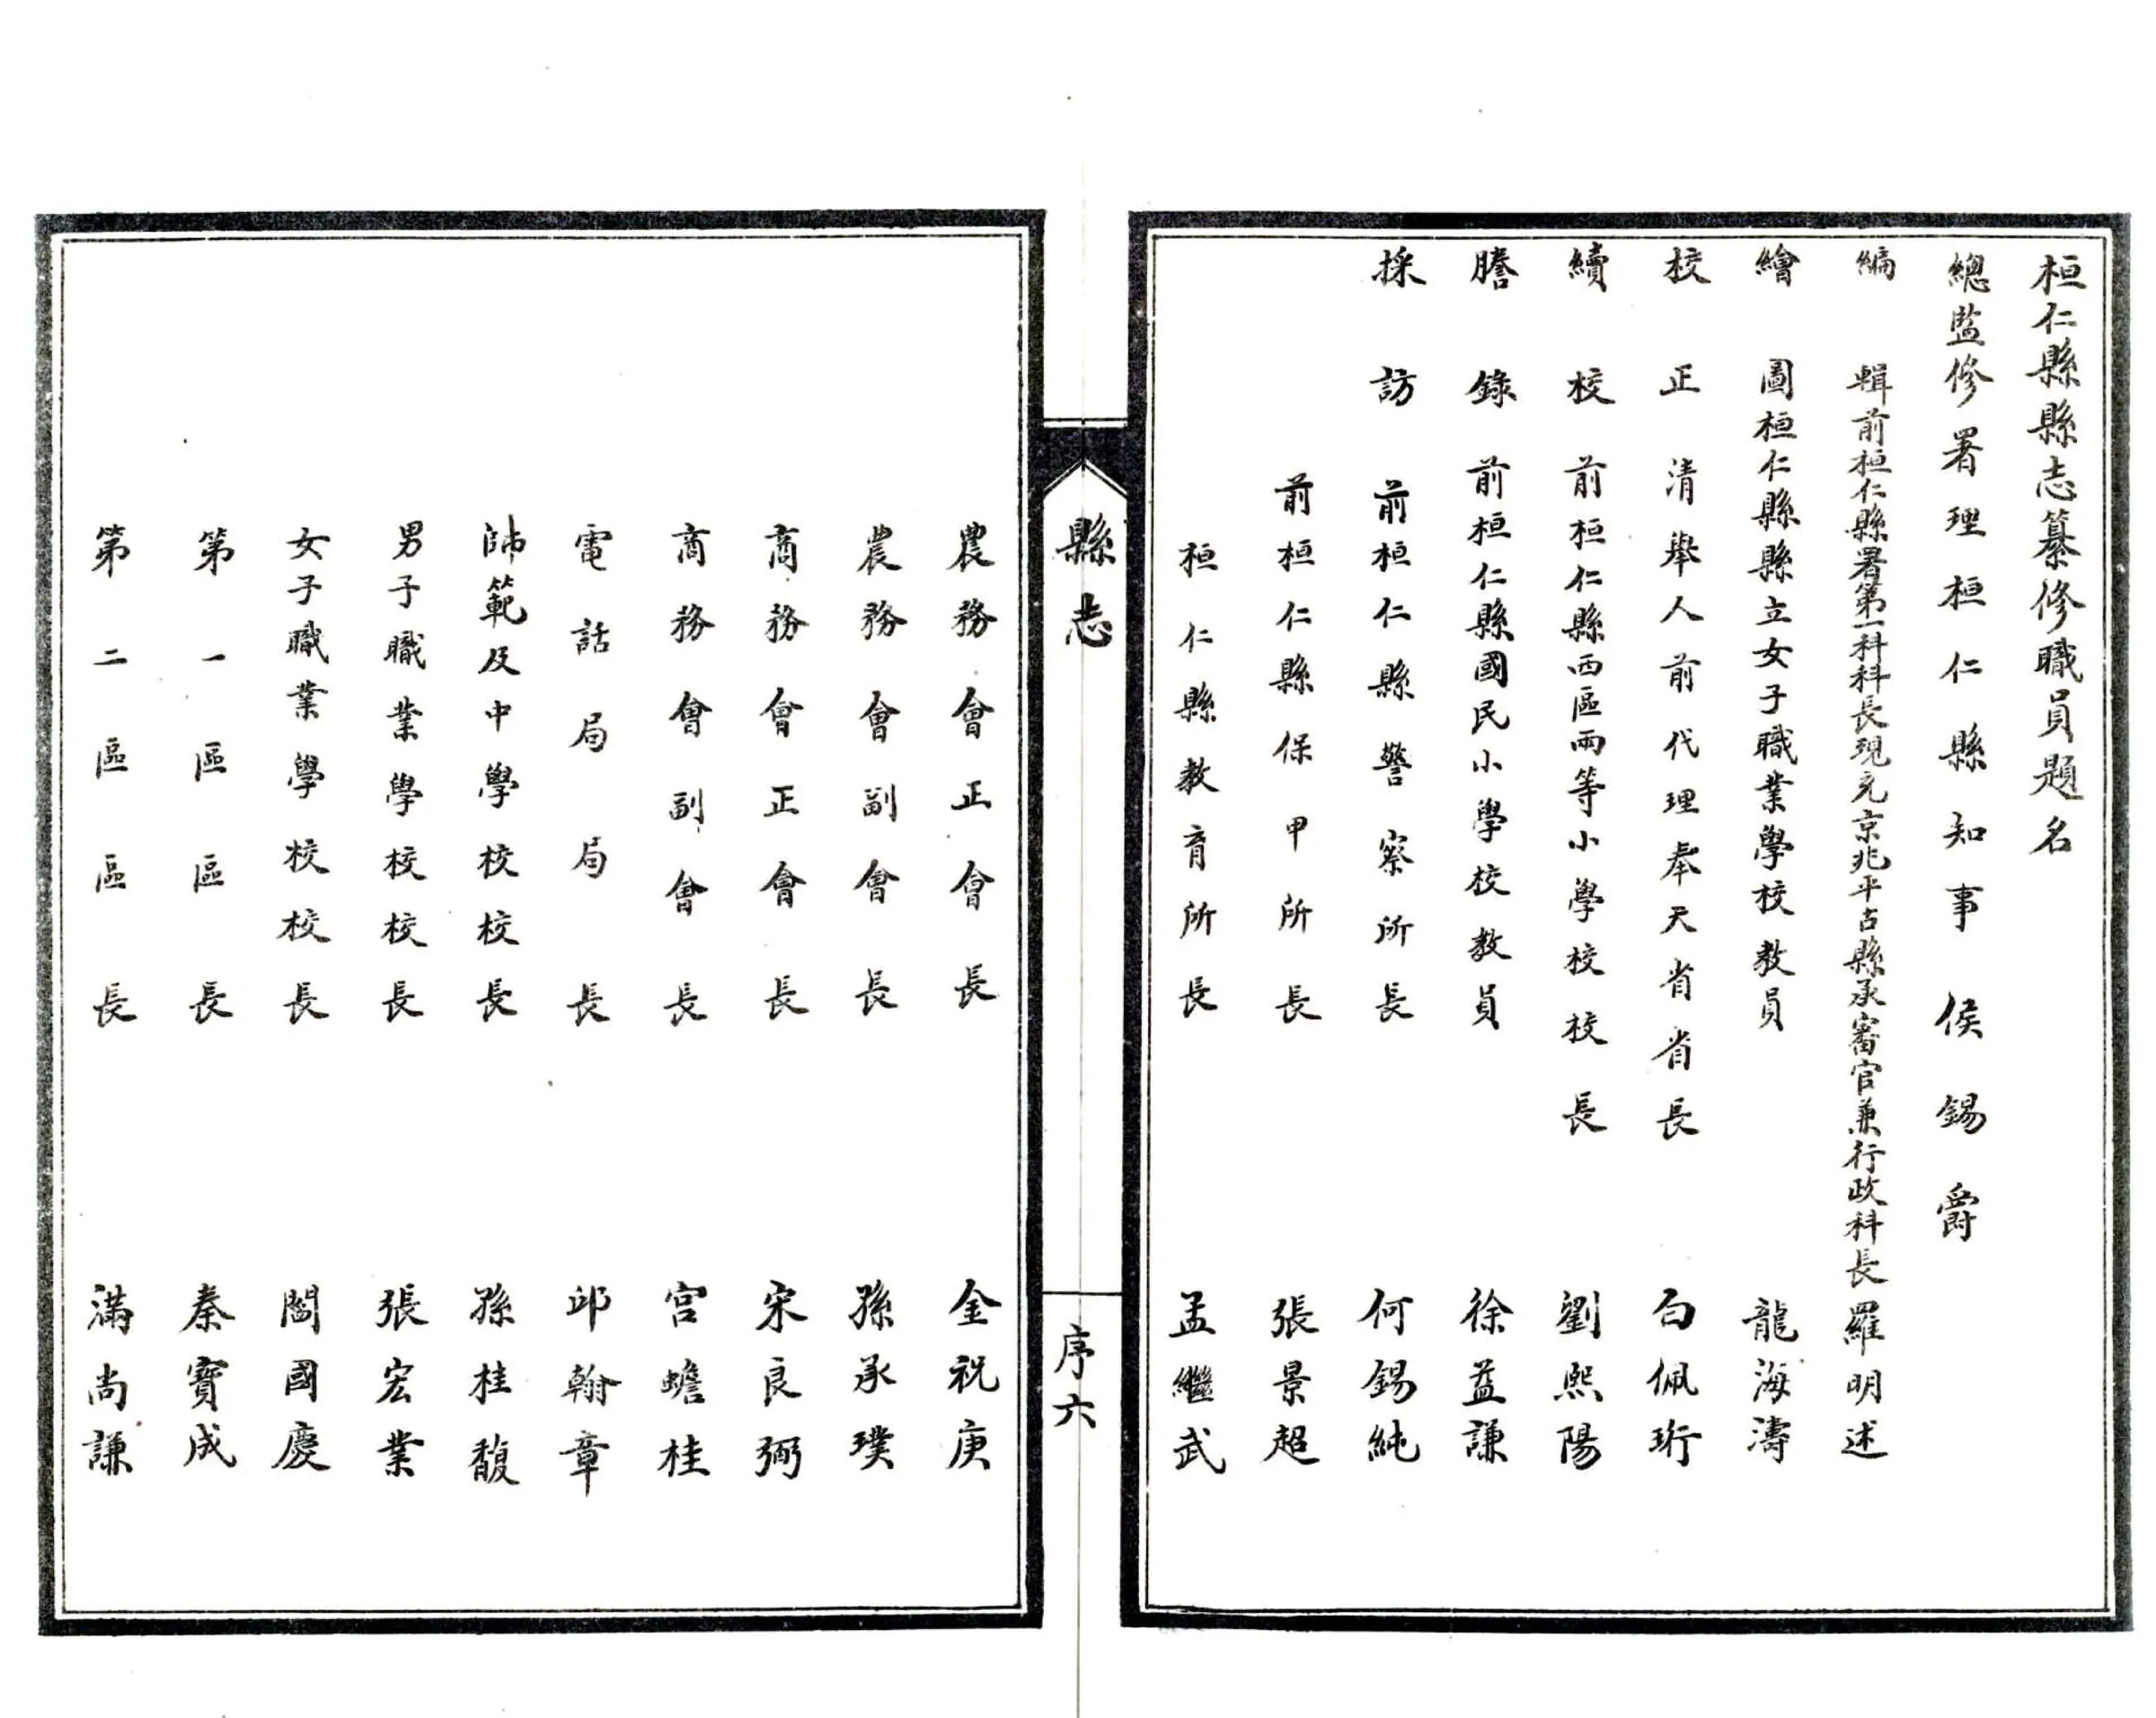 桓仁縣縣志纂修職員題名
總監修署理桓仁縣知事侯錫爵
編輯前桓仁縣署第一科科長現充京兆平古縣承審官兼行政科長羅明述
繪圖桓仁縣縣立女子職業學校教員龍海濤
校正清舉人前代理奉天省省長白佩珩
續校前桓仁縣西區兩等小學校校長劉熙陽
謄錄前桓仁縣國民小學校教員徐益謙
採訪前桓仁縣警察所長何錫純
前桓仁縣保甲所長張景超
桓仁縣教育所長孟繼武
縣志
序六
農務會正會長金祝庚
農務會副會長孫承璞
商務會正會長宋良弼
商務會副會長宮蟾桂
電話局局長邱翰章
師範及中學校校長孫桂馥
男子職業學校校長張宏業
女子職業學校校長閻國慶
第一區區長秦寶成
第二區區長滿尚謙